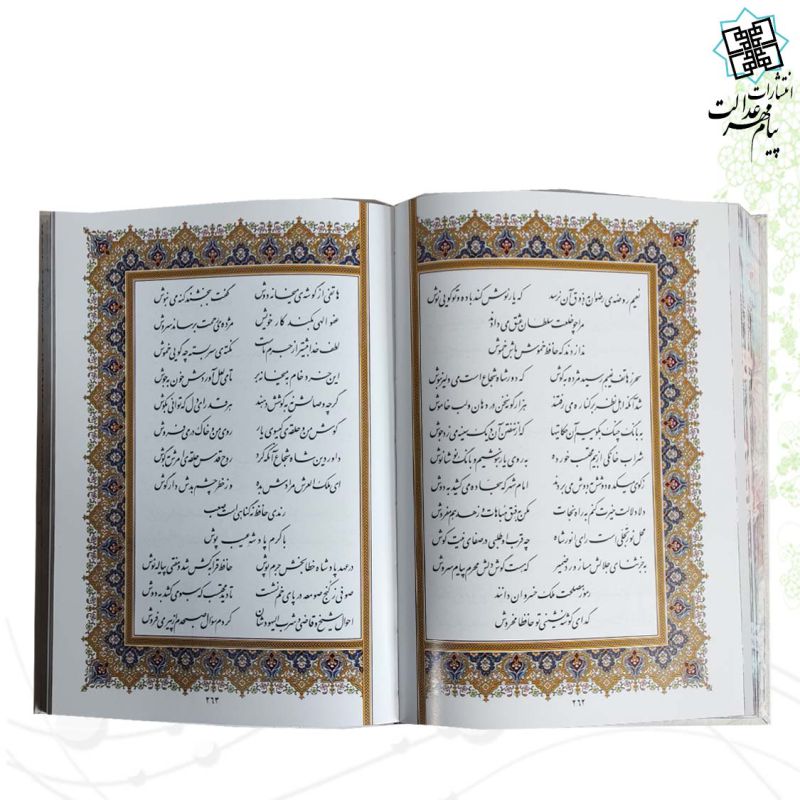 انتشارات
پیام مهر عدالت
نعیم روضه‌ی رضوان ز ذوق آن نرسد که یار نوش کند باده و تو گویی نوش
مرا چو خلعت سلطان عشق می‌دادند
ندا زدند که حافظ خموش باش خموش
سحر ز هاتف غیبم رسید مژده به گوش که دور شاه شجاع است می دلیر بنوش
شد آنکه اهل نظر بر کناره می‌رفتند هزار گونه سخن در دهان و لب خاموش
به بانگ چنگ بگوییم آن حکایتها که از نهفتن آن دیگ سینه می‌زد جوش
شراب خانگی از بیم محتسب خورده به روی یار بنوشیم و بانگ نوشانوش
ز کوی میکده دوشش به دوش می‌بردند امام شهر که سجاده می‌کشید به دوش
دلا دلالت خیرت کنم به راه نجات مکن به فسق مباهات و زهد هم مفروش
محل نور تجلی است رای انور شاه چو قرب او طلبی در صفای نیت کوش
به جز ثنای جلالش مساز ورد ضمیر که هست گوش دلش محرم پیام سروش
رموز مصلحت ملک خسروان دانند
گدای گوشه نشینی تو حافظا مخروش
۲۶۲
هاتفی از گوشه‌ی میخانه دوش گفت ببخشند گنه می بنوش
عفو الهی بکند کار خویش مژده‌ی رحمت برساند سروش
لطف خدا بیشتر از جرم ماست نکته‌ی سربسته چه گویی خموش
این خرد خام به میخانه بر تا می لعل آوردش خون به جوش
گرچه وصالش نه به کوشش دهند هر قدر ای دل که توانی بکوش
گوش من و حلقه‌ی گیسوی یار روی من و خاک در می فروش
داور دین شاه شجاع آنکه کرد روح قدس حلقه‌ی امرش به گوش
ای ملک العرش مرادش بده و ز خطر چشم بدش دار گوش
رندی حافظ نه گناهی است صعب
با کرم پادشه عیب پوش
در عهد پادشاه خطابخش جرم پوش حافظ قرابه کش شد و مفتی پیاله نوش
صوفی ز کنج صومعه در پای خم نشست تا دید محتسب که سبو می‌کشد به دوش
احوال شیخ و قاضی و شرب الیهودشان کردم سؤال صبحدم از پیر می فروش
۲۶۳